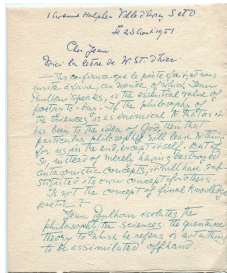 1 Avenue Halphen Ville d'Avray S et O
le 23 Août 1951
Cher Jean
Voici la lettre de W. St.
— This confidence the poet
in the world, of which Jean
Paulhan speaks, is the essential value of
poetry to-day. If the philosophy of
the sciences is as inimical to that as it
has been to the idea of God, then that
particular philosophy will leave nothing
for us in the end, except itself. But if
so, instead of merely having destroyed
antagonistic concepts, it will have sub-
stituted its own concept for theirs.
Is not the concept of final knowledge
poetic?
Jean Paulhan
philosophy the sciences: the quantum
theory to which he refers is not a thing
to be assimilated offhand.